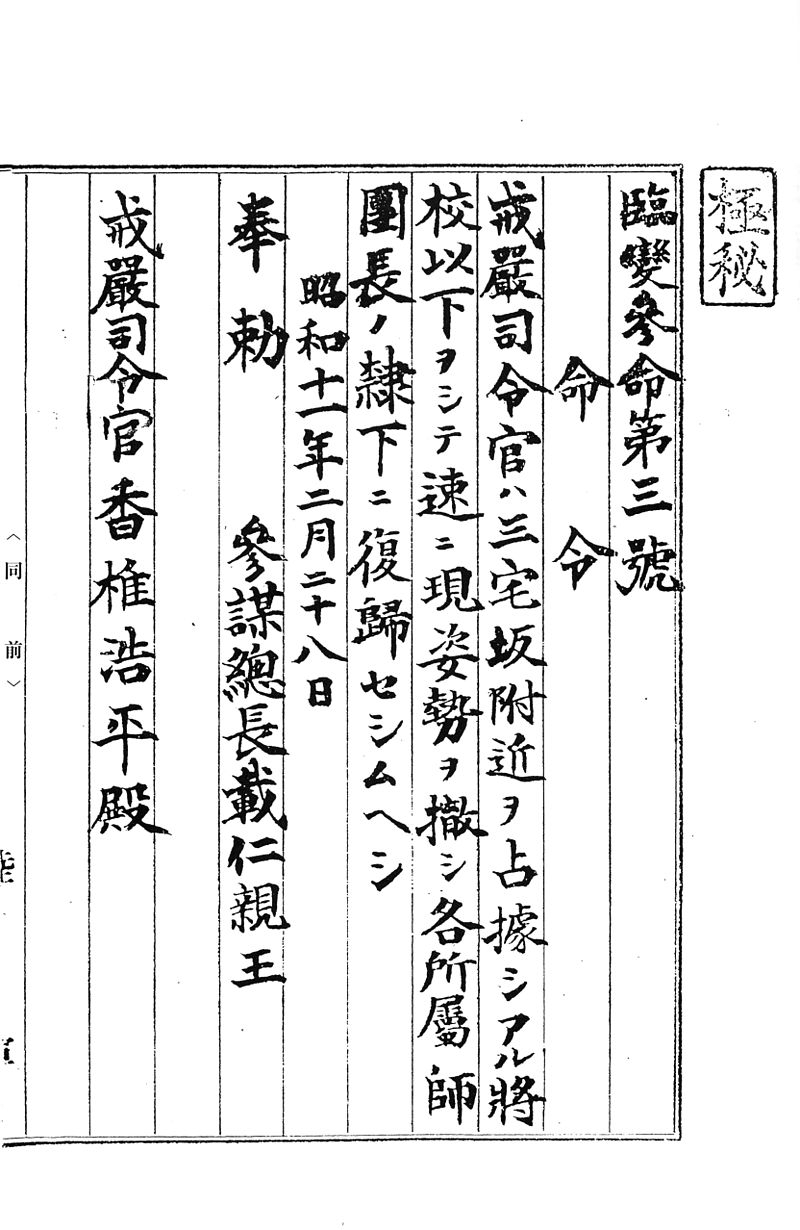 極秘
臨變參命第三號
命令
戒嚴司令官ハ三宅坂附近ヲ占據シアル將
校以下ヲシテ速ニ現姿勢ヲ撤シ各所屬師
團長ノ隸下ニ復歸セシムヘシ
昭和十一年二月二十八日
奉勅　參謀總長載仁親王
戒嚴司令官香椎浩平殿
〈同前〉